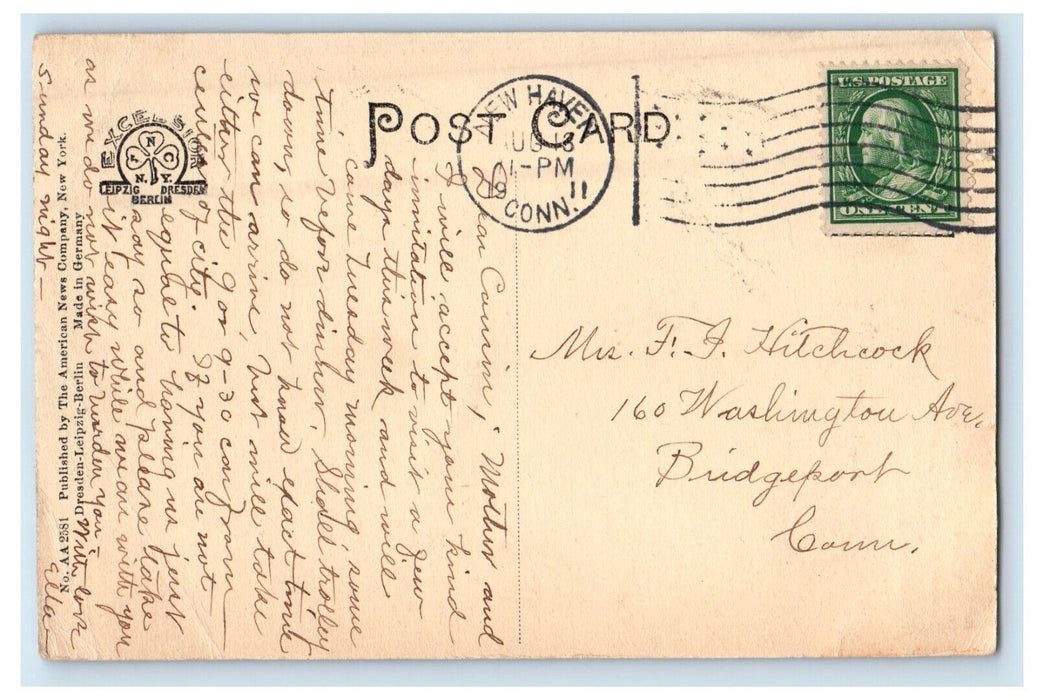 POST CARD
EXCELSIOR
A N C
N.Y.
LEIPZIG DRESDEN
BERLIN
No. AA 2581 Published by The American News Company, New York.
Dresden-Leipzig-Berlin Made in Germany
NEW HAVEN
AUG 13
1-PM
1911
CONN.
U.S. POSTAGE
ONE CENT
Sunday night—
Dear Cousin; Mother and
I will accept your kind
invitation to visit a few
days this week and will
come Tuesday morning some
time before dinner, trolley
down, so do not know exact time
we can arrive, but will take
either the 9 or 9-30 car from
center of city. If you are not
equal to having us just
say so and please take
it easy while we are with you
as we do not wish to burden you—
With love
Ella—
Mrs. F. J. Hitchcock
160 Washington Ave,
Bridgeport
Conn.